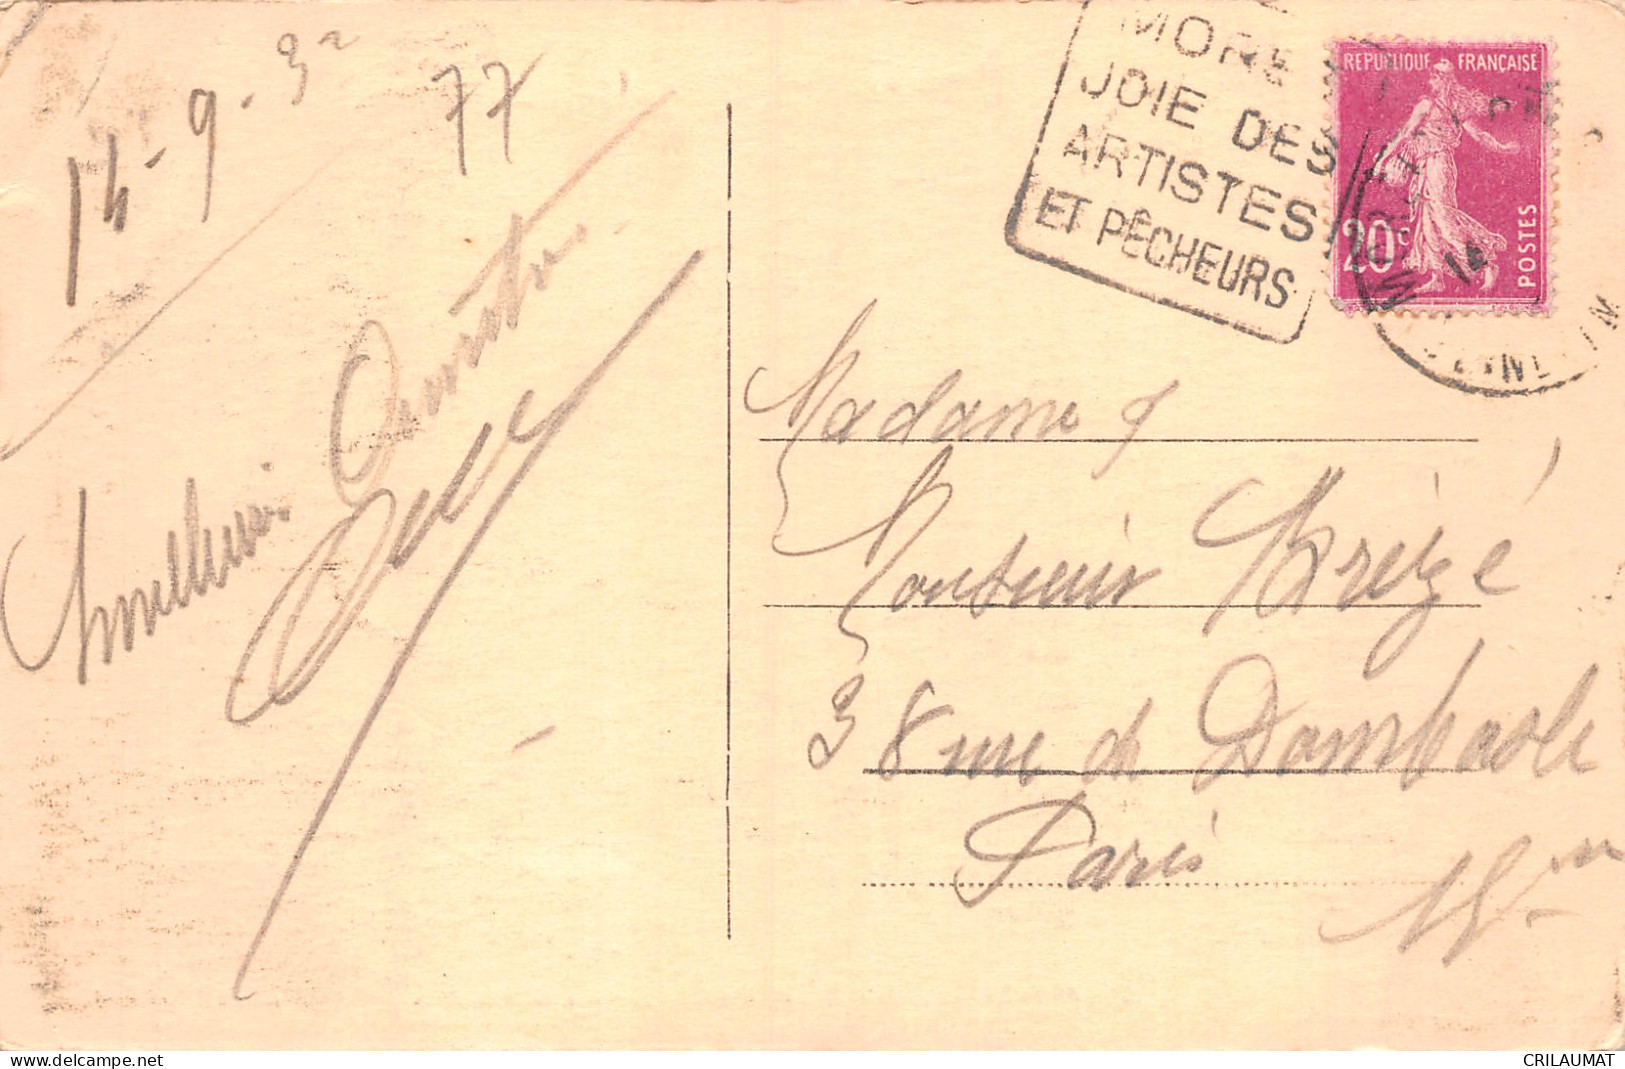 14-9-32
77
Meilleures Amitiés
MORET
JOIE DES
ARTISTES
ET PÊCHEURS
REPUBLIQUE FRANÇAISE
20c
POSTES
14
Madame &
Monsieur Krézé
38 rue de Dombasle
Paris
15me
delcampe.net
CRILAUMAT